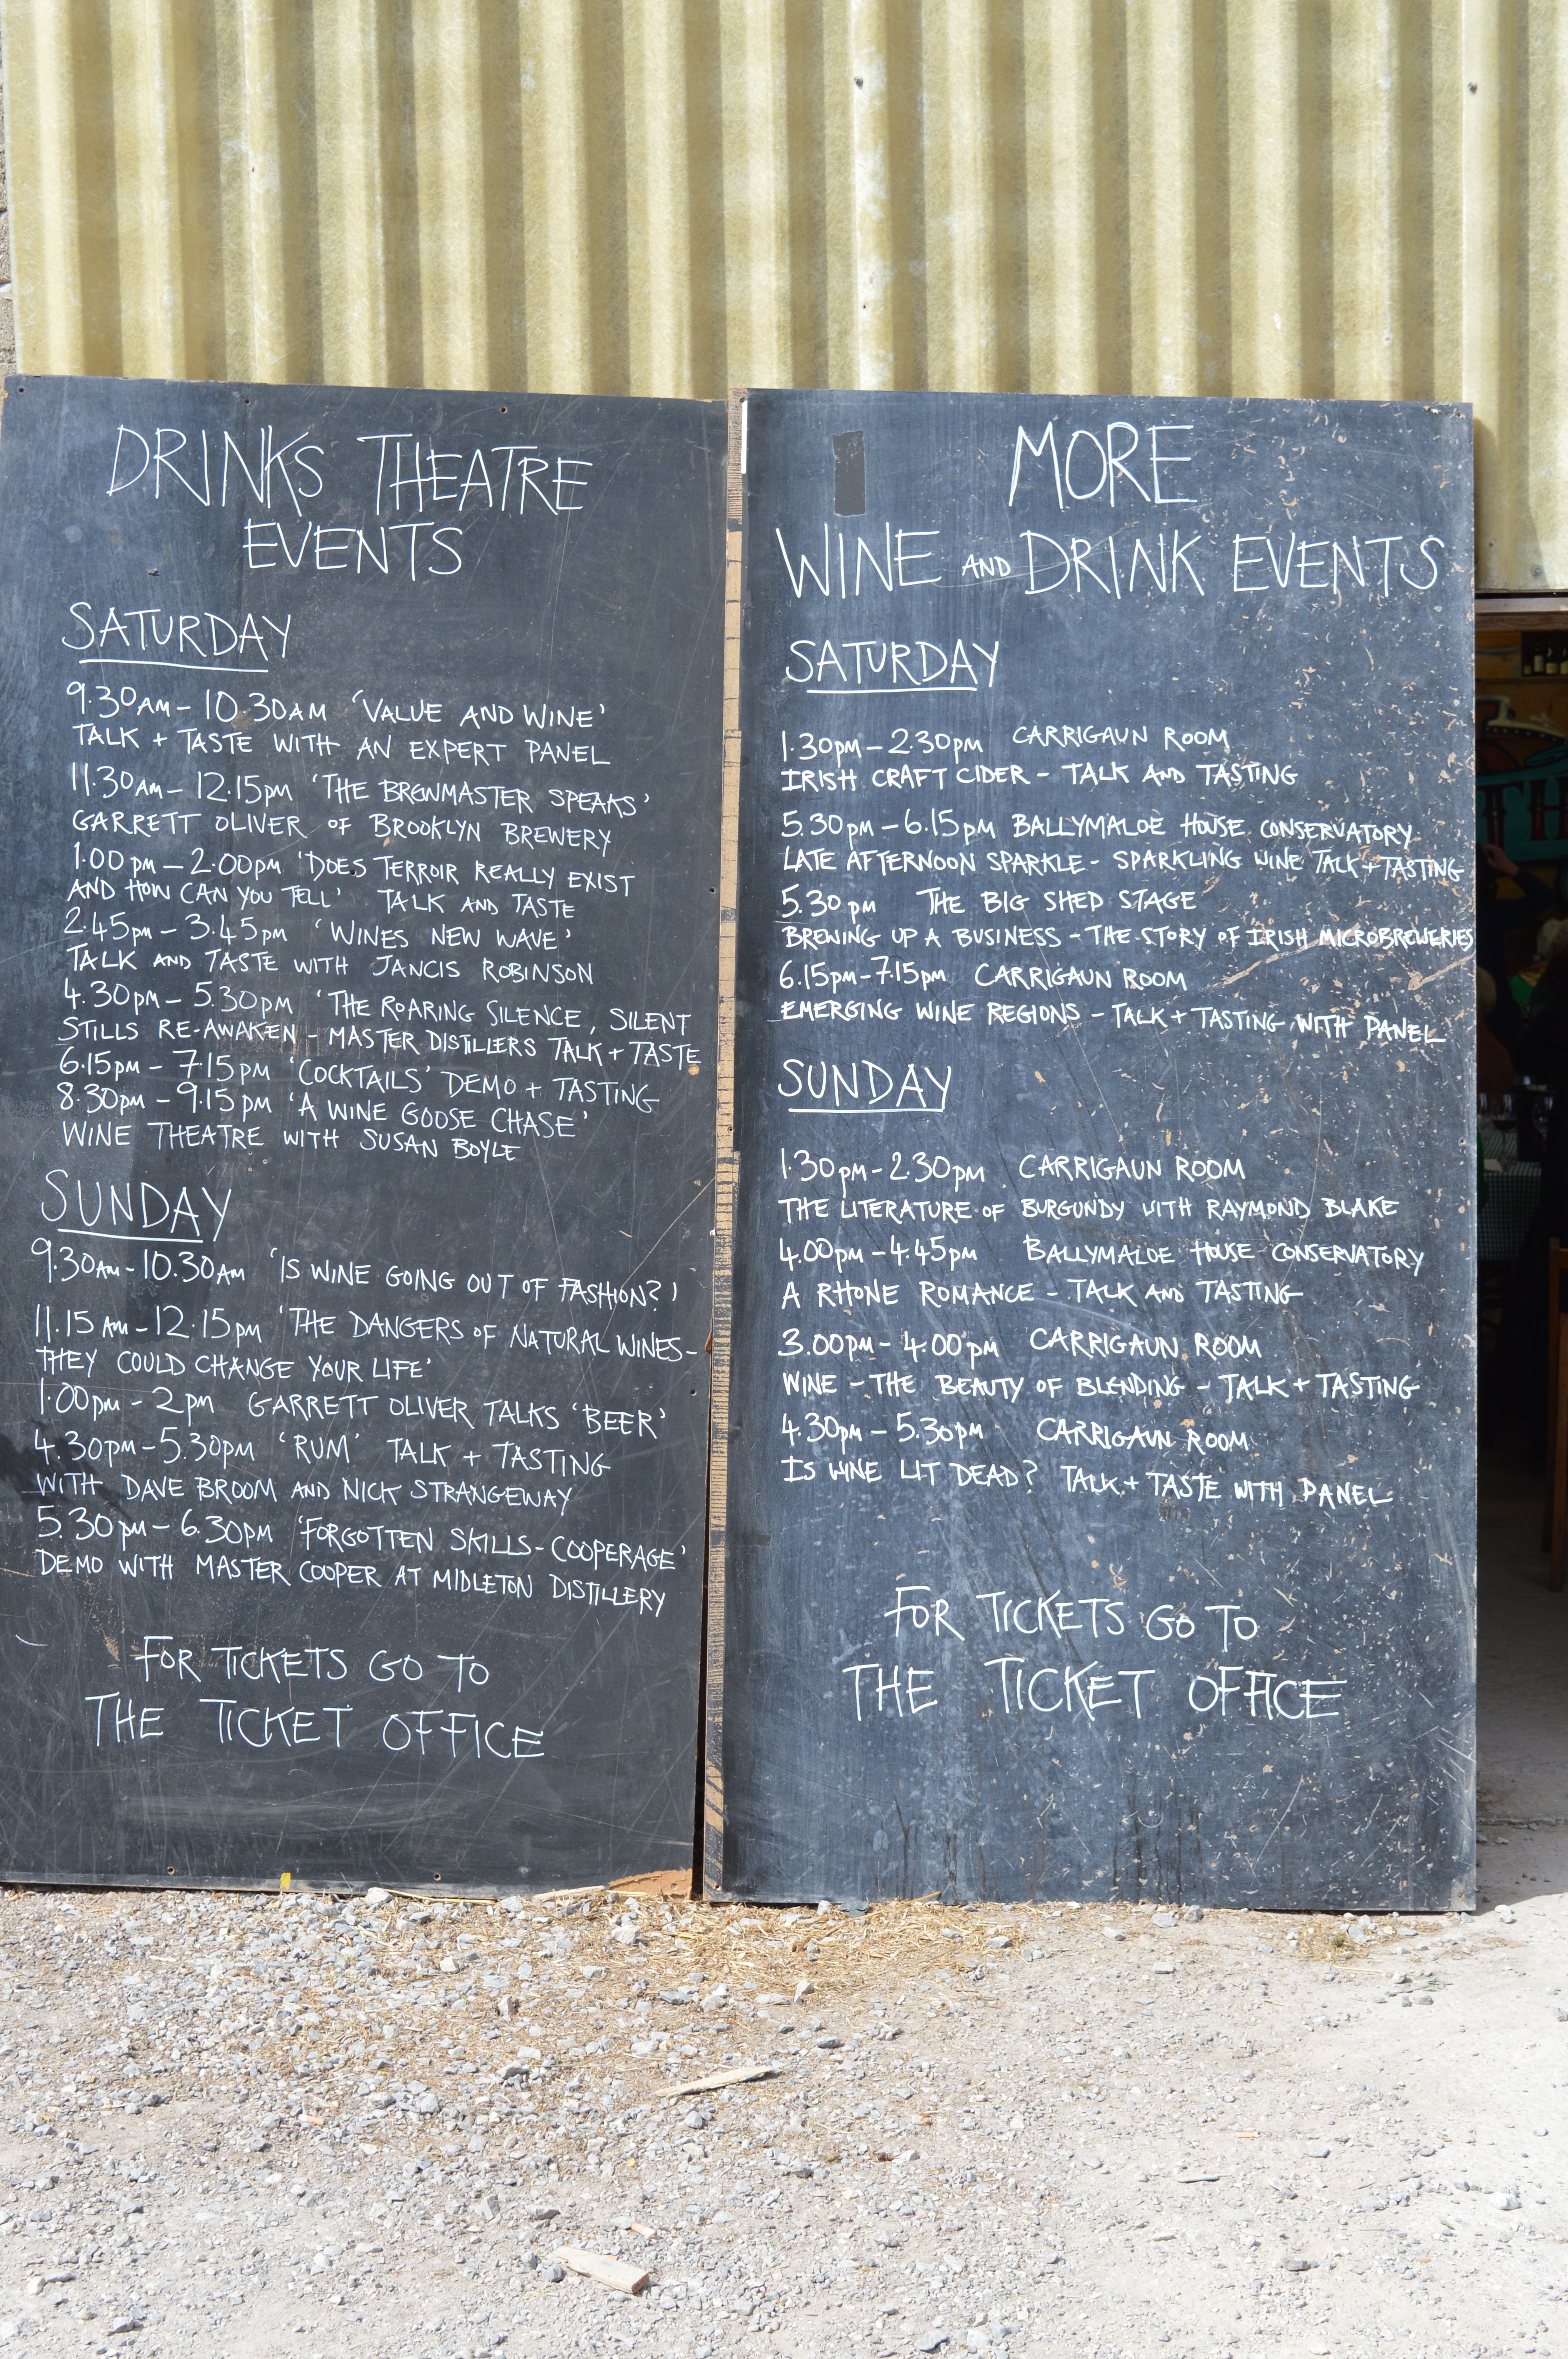 DRINKS THEATRE
EVENTS
SATURDAY
9.30AM - 10.30AM 'VALUE AND WINE'
TALK + TASTE WITH AN EXPERT PANEL
11.30AM - 12.15PM 'THE BREWMASTER SPEAKS'
GARRETT OLIVER OF BROOKLYN BREWERY
1.00PM - 2.00PM 'DOES TERROIR REALLY EXIST
AND HOW CAN YOU TELL' TALK AND TASTE
2.45PM - 3.45PM 'WINES NEW WAVE'
TALK AND TASTE WITH JANCIS ROBINSON
4.30PM - 5.30PM 'THE ROARING SILENCE, SILENT
STILLS RE-AWAKEN - MASTER DISTILLERS TALK + TASTE
6.15PM - 7.15PM 'COCKTAILS' DEMO + TASTING
8.30PM - 9.15PM 'A WINE GOOSE CHASE'
WINE THEATRE WITH SUSAN BOYLE
SUNDAY
9.30AM - 10.30AM 'IS WINE GOING OUT OF FASHION?'
11.15AM - 12.15PM 'THE DANGERS OF NATURAL WINES -
THEY COULD CHANGE YOUR LIFE'
1.00PM - 2PM GARRETT OLIVER TALKS 'BEER'
4.30PM - 5.30PM 'RUM' TALK + TASTING
WITH DAVE BROOM AND NICK STRANGEWAY
5.30PM - 6.30PM 'FORGOTTEN SKILLS - COOPERAGE'
DEMO WITH MASTER COOPER AT MIDLETON DISTILLERY
FOR TICKETS GO TO
THE TICKET OFFICE
MORE
WINE AND DRINK EVENTS
SATURDAY
1.30PM - 2.30PM CARRIGAUN ROOM
IRISH CRAFT CIDER - TALK AND TASTING
5.30PM - 6.15PM BALLYMALOE HOUSE CONSERVATORY
LATE AFTERNOON SPARKLE - SPARKLING WINE TALK + TASTING
5.30PM THE BIG SHED STAGE
BREWING UP A BUSINESS - THE STORY OF IRISH MICROBREWERIES
6.15PM - 7.15PM CARRIGAUN ROOM
EMERGING WINE REGIONS - TALK + TASTING WITH PANEL
SUNDAY
1.30PM - 2.30PM CARRIGAUN ROOM
THE LITERATURE OF BURGUNDY WITH RAYMOND BLAKE
4.00PM - 4.45PM BALLYMALOE HOUSE CONSERVATORY
A RHONE ROMANCE - TALK AND TASTING
3.00PM - 4.00PM CARRIGAUN ROOM
WINE - THE BEAUTY OF BLENDING - TALK + TASTING
4.30PM - 5.30PM CARRIGAUN ROOM
IS WINE LIT DEAD? TALK + TASTE WITH PANEL
FOR TICKETS GO TO
THE TICKET OFFICE